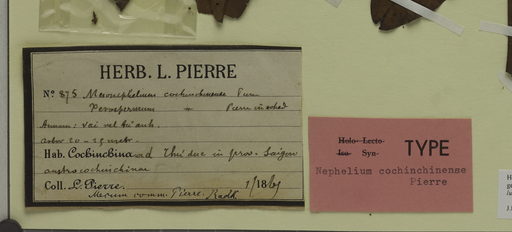 HERB. L. PIERRE
No. 875 Mesonephelium cochinchinense Pierre
Xerospermum Pierre in sched
Annam: Vai vel
arbor 20 - 25 metr.
Hab. Cochinchina ad Thu duc in prov. Saigon
austro cochinchinae
Coll. L. Pierre. 1/1865
Merum comm. Pierre. Radlk.
Holo- Lecto- TYPE
Iso- Syn-
Nephelium cochinchinense
Pierre